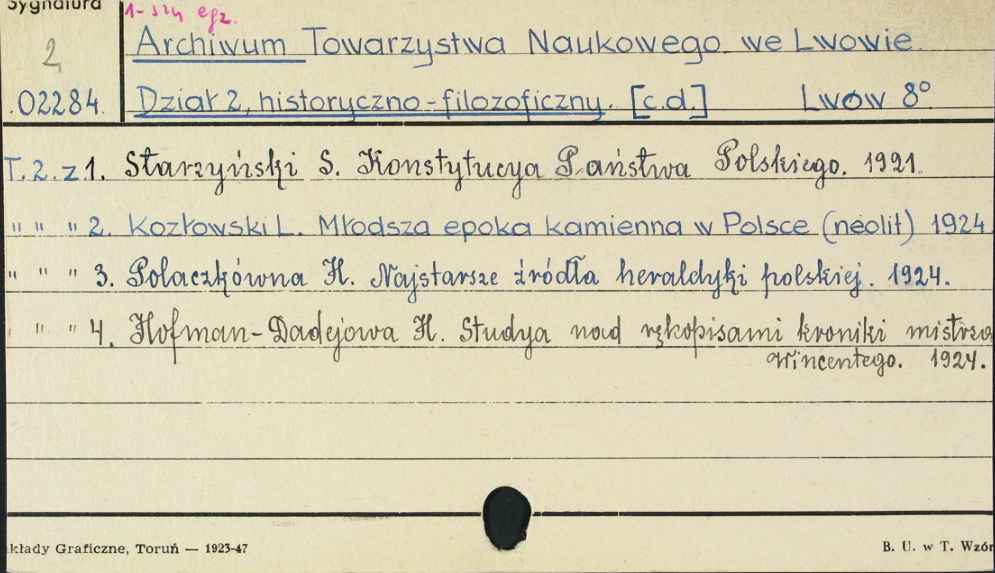 Sygnatura 1-szy egz.
2 Archiwum Towarzystwa Naukowego we Lwowie
02284. Dział 2, historyczno-filozoficzny. [c.d.] Lwów 8°
T. 2. z 1. Starzyński S. Konstytucya Państwa Polskiego. 1921.
" " " 2. Kozłowski L. Młodsza epoka kamienna w Polsce (neolit) 1924
" " " 3. Polaczkówna H. Najstarsze źródła heraldyki polskiej. 1924.
" " " 4. Hofman-Dadejowa H. Studya nad rękopisami kroniki mistrza
Wincentego. 1924.
kłady Graficzne, Toruń — 1923-47 B. U. w T. Wzór